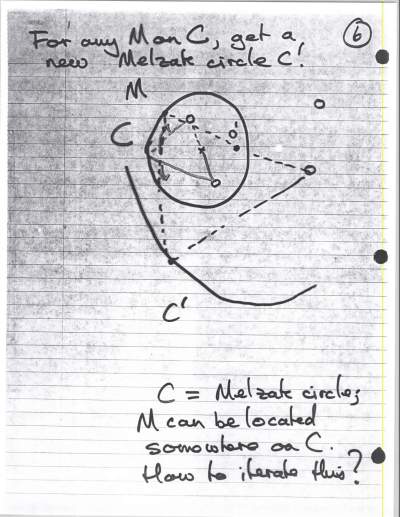 For any M on C, get a
new Melzak circle C'.
6
M
C
C'
C = Melzak circle;
M can be located
somewhere on C.
How to iterate this?